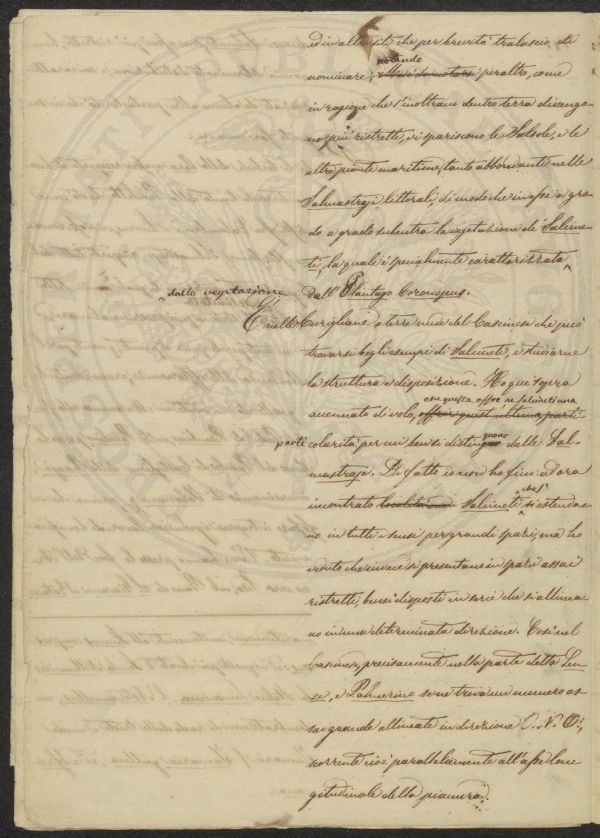 ed in alt siti che per brevità tralascio di
notando
nominare; peraltro, come
in ragione che s'inoltrano dentro terra divengo-
no più ristrette, vi spariscono le Salsole, e le
altre piante marittime, tanto abbondanti nelle
Salmastraje littorali, di modo che in asse a gra-
do a grado subentra la vegetazione de' Salcine-
ti, la quale è specialmente caratterizzata
dalla vegetazione
dall' Plantago Coronopus.
È nelle Curigliane o terre nude del Cascinese che può
trovarsi begli esempi di Salcineti, e studiarne
la struttura e disposizione. Ho qui sopra
che questa offre ne Salcineti una
avennato di volo, offrir quest' ultima parti-
parti colarità per cui bensì distinguono dalle Sal-
mastraje. Di fatto io non ho fino ad ora
incontrato località di Salcineti che si estenda-
no in tutti i sensi per grandi spazi, ma ho
veduto che invece si presentano in spazi assai
ristretti, bensì disposti in serie che si allinea-
no in una determinata direzione. Così nel
Cascinese, precisamente nella parte detta Len-
se, e Palmerino se ne trova un numero as-
sai grande allineate in direzione O. N. O.,
corrente cioè parallelamente all'asse lon-
gitudinale della pianura.